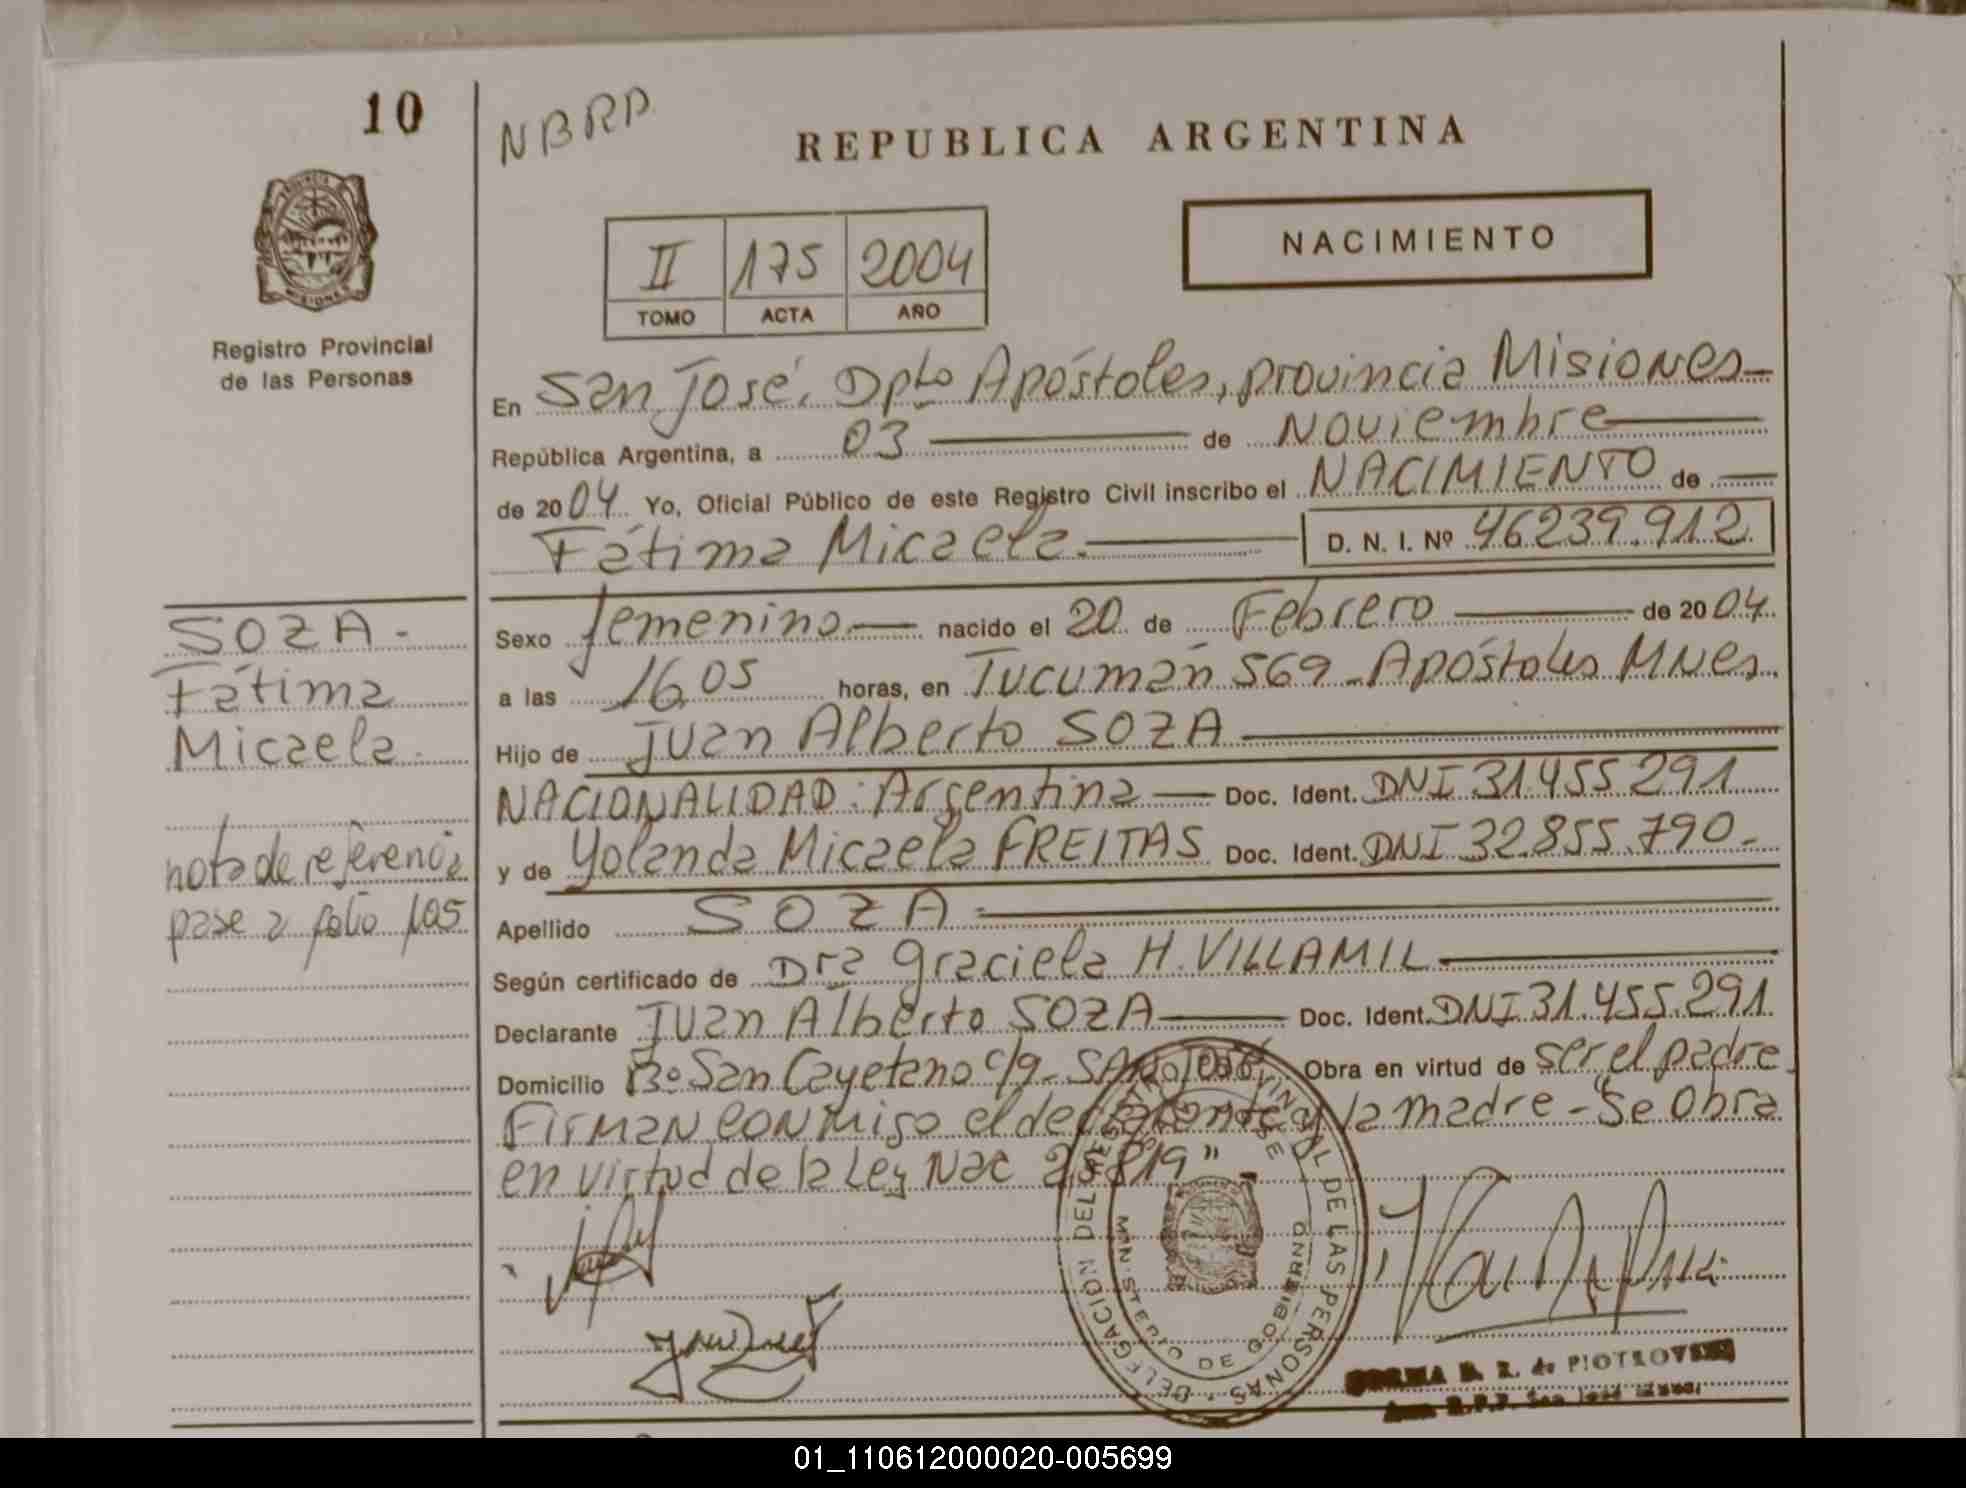 10
NBRD
REPUBLICA ARGENTINA
NACIMIENTO
II 175 2004
TOMO ACTA AÑO
Registro Provincial
de las Personas
En San José, Dpto Apóstoles, provincia Misiones
República Argentina, a 03 de Noviembre
de 2004 Yo, Oficial Público de este Registro Civil inscribo el NACIMIENTO de
Fátima Micaela. D. N. I. Nº 46239.912
SOZA.
Fátima
Micaela.
nota de referencia
pase a folio 105
Sexo femenino nacido el 20 de Febrero de 2004
a las 16,05 horas, en Tucumán 569 - Apóstoles Mnes.
Hijo de Juan Alberto SOZA
NACIONALIDAD: Argentina Doc. Ident. DNI 31.455.291
y de Yolanda Micaela FREITAS Doc. Ident. DNI 32.855.790.-
Apellido SOZA.
Según certificado de Dra Graciela H. VILLAMIL
Declarante Juan Alberto SOZA Doc. Ident. DNI 31.455.291
Domicilio Bº San Cayetano c/9 - San José, Obra en virtud de ser el padre.
Firman conmigo el declarante y la madre - "Se obra
en virtud de la Ley Nac 25819"
DELEGACION DEL REGISTRO PROVINCIAL DE LAS PERSONAS
SAN JOSE
MINISTERIO DE GOBIERNO
NORMA B. R. de PIOTROVSKI
R.P.P. San José
01_110612000020-005699